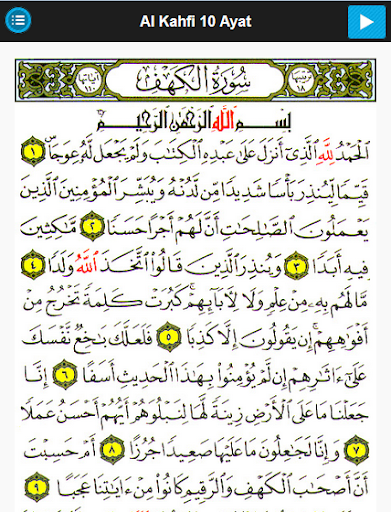 Al Kahfi 10 Ayat
سُورَةُ الْكَهْفِ
بِسْمِ اللَّهِ الرَّحْمَٰنِ الرَّحِيمِ
الْحَمْدُ لِلَّهِ الَّذِي أَنزَلَ عَلَىٰ عَبْدِهِ الْكِتَابَ وَلَمْ يَجْعَل لَّهُ عِوَجَا ۜ ١
قَيِّمًا لِّيُنذِرَ بَأْسًا شَدِيدًا مِّن لَّدُنْهُ وَيُبَشِّرَ الْمُؤْمِنِينَ الَّذِينَ
يَعْمَلُونَ الصَّالِحَاتِ أَنَّ لَهُمْ أَجْرًا حَسَنًا ٢ مَّاكِثِينَ
فِيهِ أَبَدًا ٣ وَيُنذِرَ الَّذِينَ قَالُوا اتَّخَذَ اللَّهُ وَلَدًا ٤
مَّا لَهُم بِهِ مِنْ عِلْمٍ وَلَا لِآبَائِهِمْ ۚ كَبُرَتْ كَلِمَةً تَخْرُجُ مِنْ
أَفْوَاهِهِمْ ۚ إِن يَقُولُونَ إِلَّا كَذِبًا ٥ فَلَعَلَّكَ بَاخِعٌ نَّفْسَكَ
عَلَىٰ آثَارِهِمْ إِن لَّمْ يُؤْمِنُوا بِهَٰذَا الْحَدِيثِ أَسَفًا ٦ إِنَّا
جَعَلْنَا مَا عَلَى الْأَرْضِ زِينَةً لَّهَا لِنَبْلُوَهُمْ أَيُّهُمْ أَحْسَنُ عَمَلًا
٧ وَإِنَّا لَجَاعِلُونَ مَا عَلَيْهَا صَعِيدًا جُرُزًا ٨ أَمْ حَسِبْتَ
أَنَّ أَصْحَابَ الْكَهْفِ وَالرَّقِيمِ كَانُوا مِنْ آيَاتِنَا عَجَبًا ٩